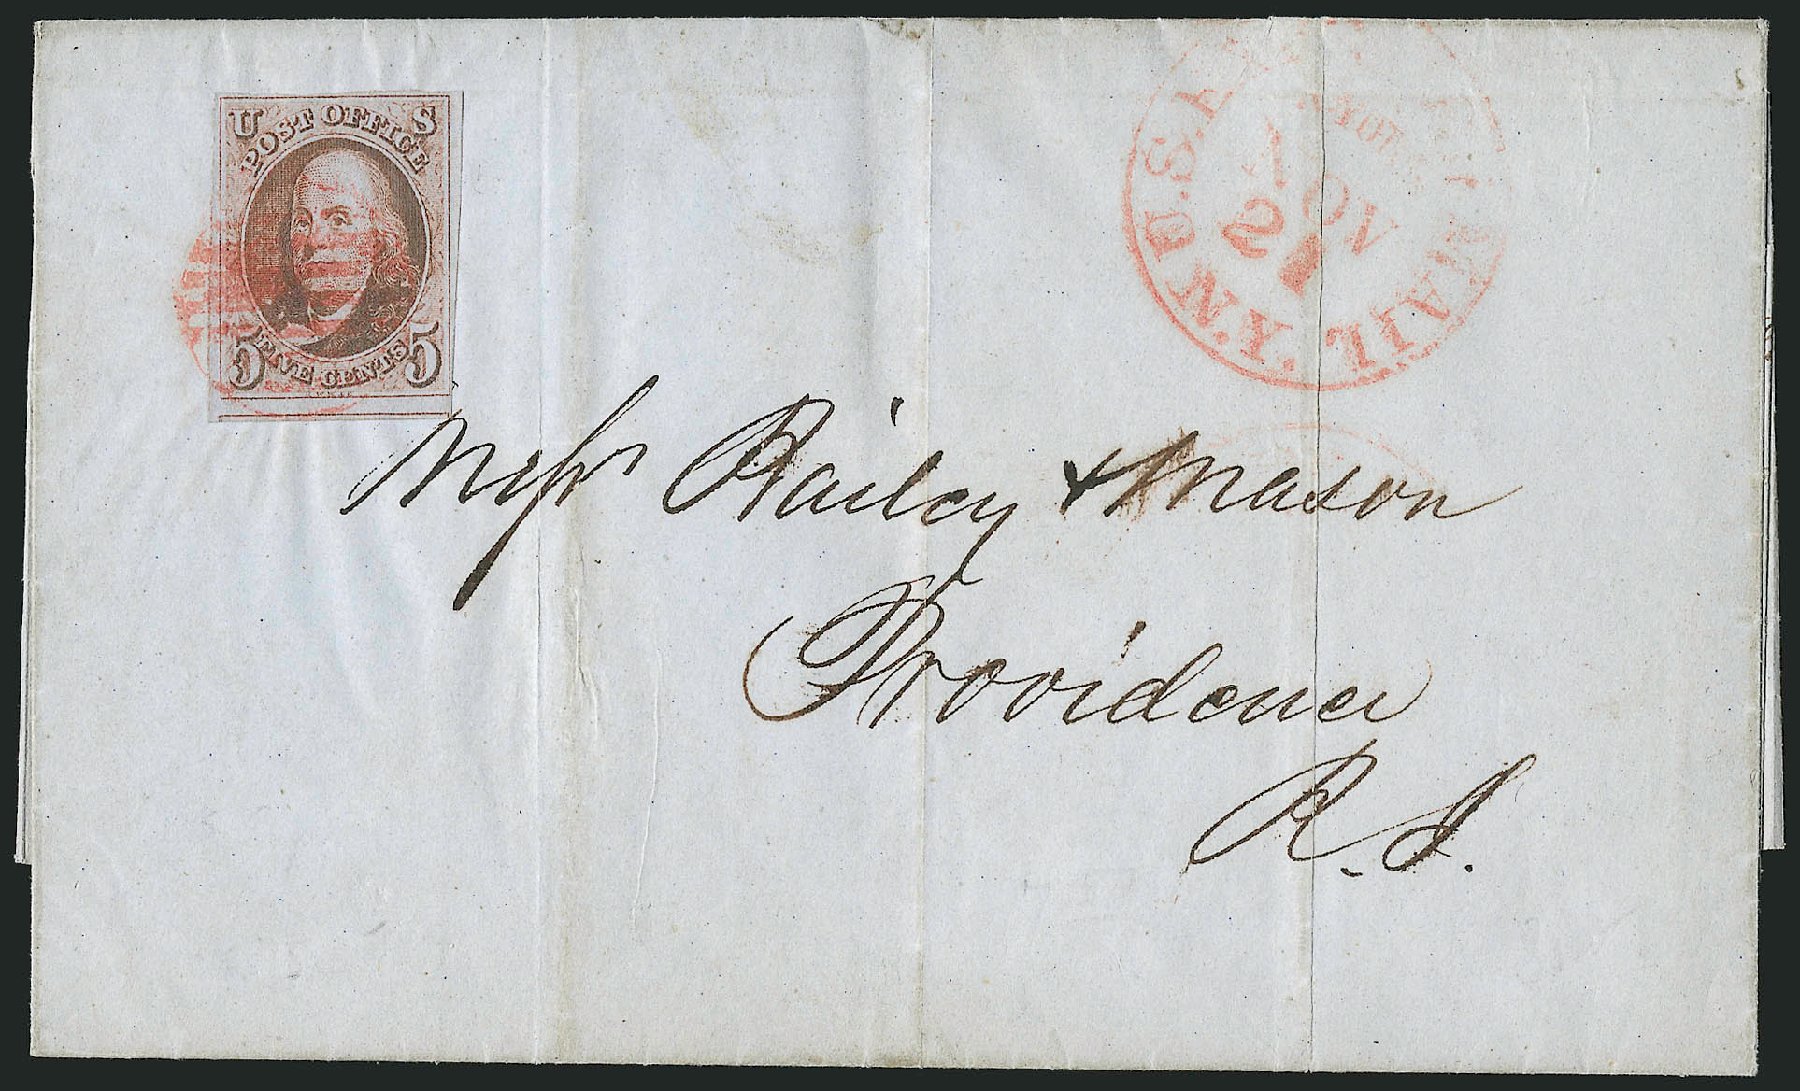 U S
POST OFFICE
5 FIVE CENTS 5
U.S. EXPRESS MAIL. N.Y.
NOV
21
Messrs Hailey & Mason
Providence
R. I.